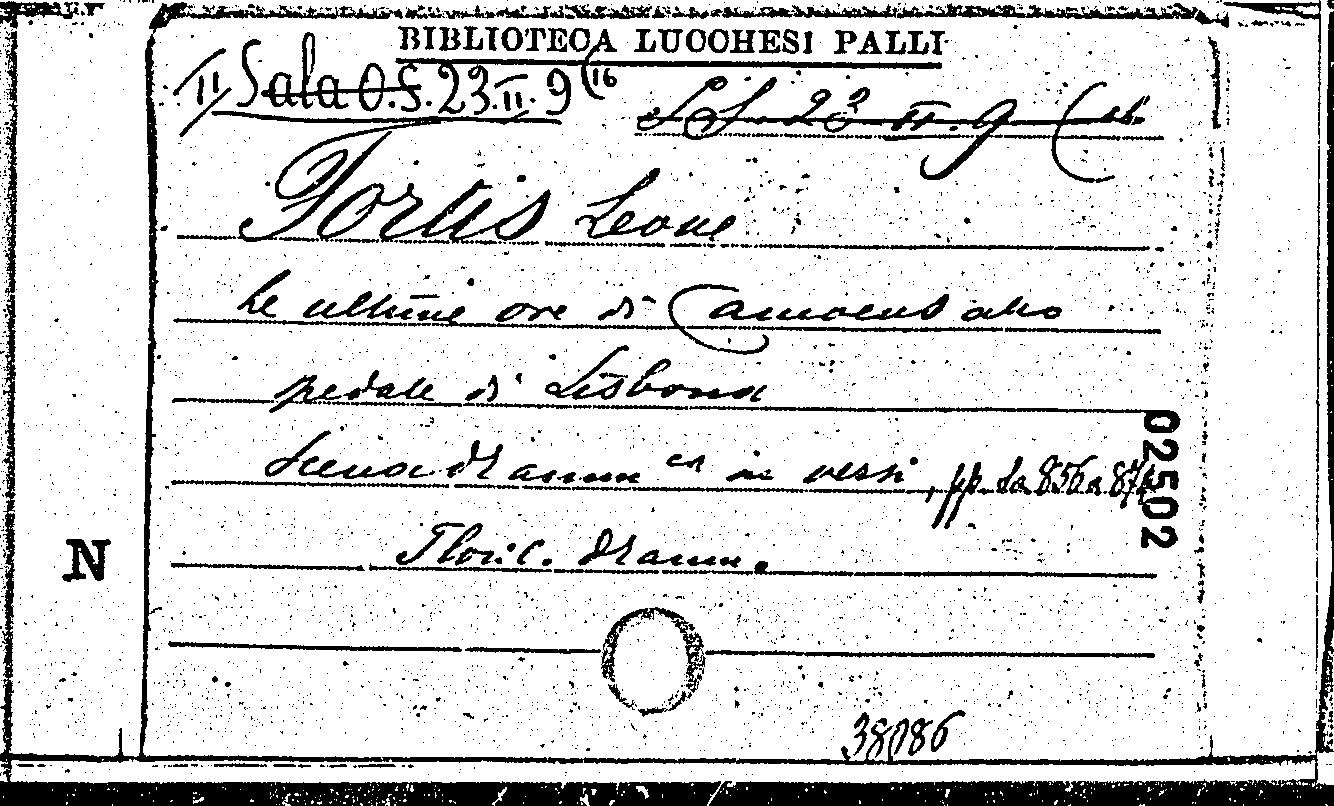 BIBLIOTECA LUCCHESI PALLI
II Sala O.S. 23.II.9(16
S.S. 23 II. 9 (16
Fortis Leone
Le ultime ore di Camoens allo
spedale di Lisbona
Scena dramm ca in versi, pp. da 856 a
Floril. dramm.
02502
N
38086